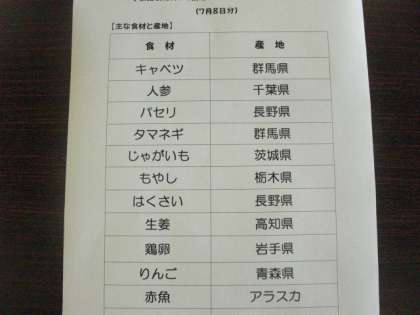 (7月8日分)
【主な食材と産地】
食材 産地
キャベツ 群馬県
人参 千葉県
パセリ 長野県
タマネギ 群馬県
じゃがいも 茨城県
もやし 栃木県
はくさい 長野県
生姜 高知県
鶏卵 岩手県
りんご 青森県
赤魚 アラスカ